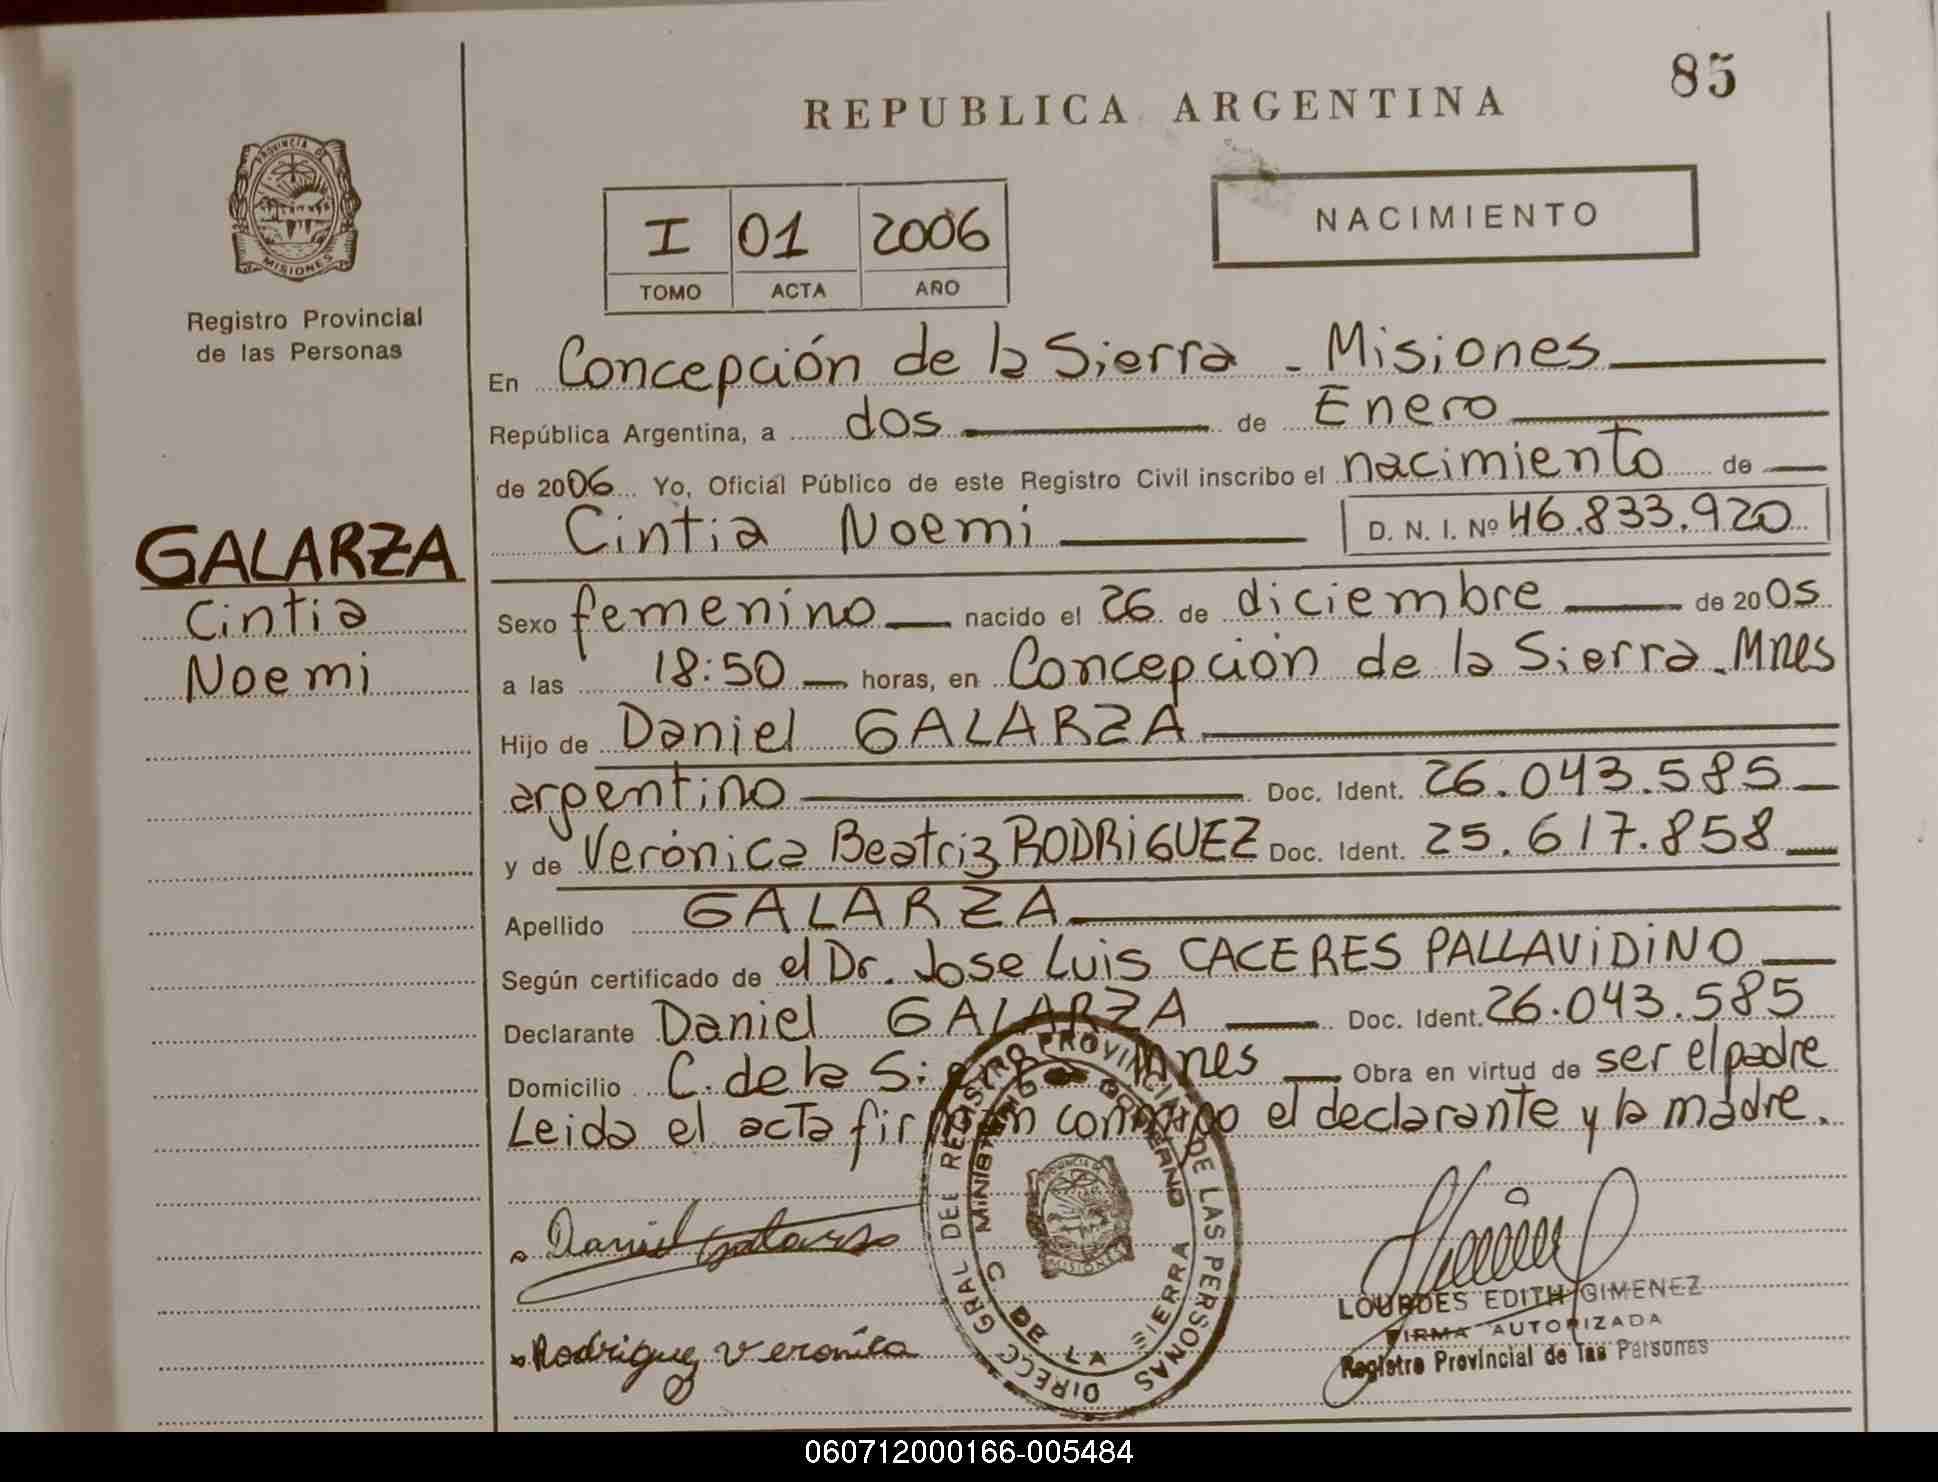 85
REPUBLICA ARGENTINA
PROVINCIA DE
MISIONES
Registro Provincial
de las Personas
I 01 2006
TOMO ACTA AÑO
NACIMIENTO
En Concepción de la Sierra - Misiones
República Argentina, a dos de Enero
de 2006 Yo, Oficial Público de este Registro Civil inscribo el nacimiento de
Cintia Noemi D. N. I. Nº 46.833.920
GALARZA
Cintia
Noemi
Sexo femenino nacido el 26 de diciembre de 2005
a las 18:50 horas, en Concepción de la Sierra - Mnes
Hijo de Daniel GALARZA
argentino Doc. Ident. 26.043.585
y de Verónica Beatriz RODRIGUEZ Doc. Ident. 25.617.858
Apellido GALARZA
Según certificado de el Dr. Jose Luis CACERES PALLAVIDINO
Declarante Daniel GALARZA Doc. Ident. 26.043.585
Domicilio C. de la Sierra Mnes Obra en virtud de ser el padre
Leida el acta firman conmigo el declarante y la madre.
Daniel Galarza
Rodriguez Veronica
DIRECC GRAL DEL REGISTRO PROVINCIAL DE LAS PERSONAS
MINISTERIO DE GOBIERNO
C DE LA SIERRA
MISIONES
LOURDES EDITH GIMENEZ
FIRMA AUTORIZADA
Registro Provincial de las Personas
060712000166-005484